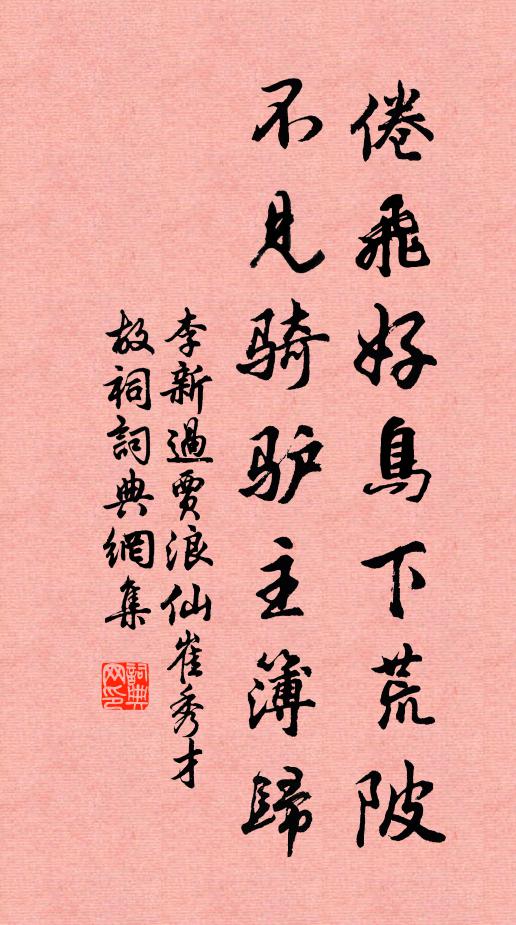 倦飛好鳥下荒陂
不見骑驴主簿歸
李新過賈浪仙崔秀才
故祠詞典網集
詞典
网印